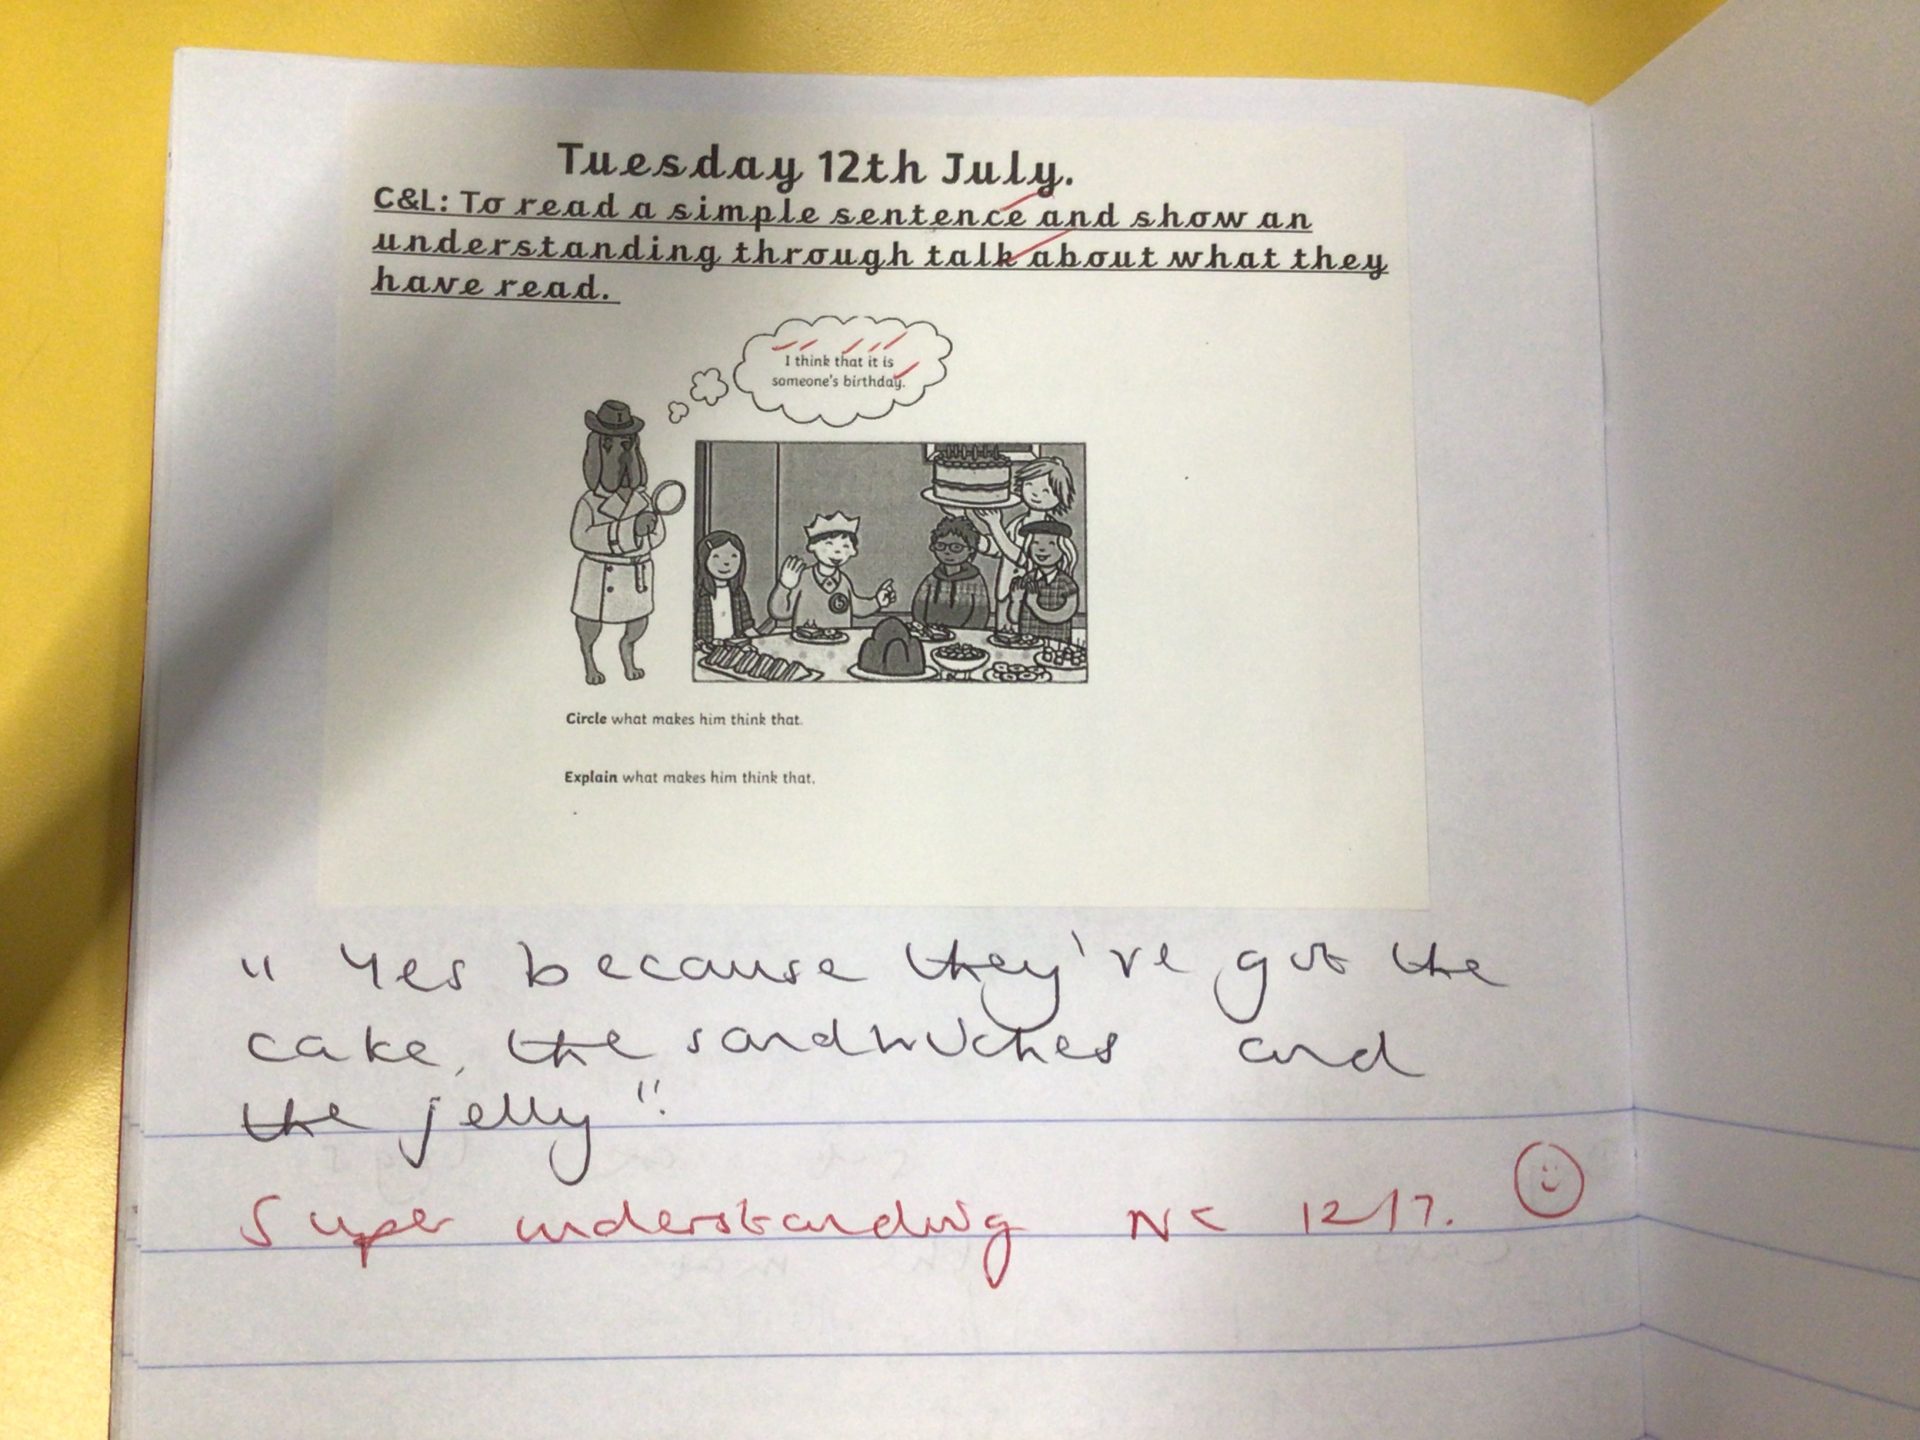 Tuesday 12th July.
C&L: To read a simple sentence and show an
understanding through talk about what they
have read.
I think that it is
someone's birthday.
Circle what makes him think that.
Explain what makes him think that.
"Yes because they've got the
cake, the sandwiches and
the jelly".
Super understanding NC 12/7.